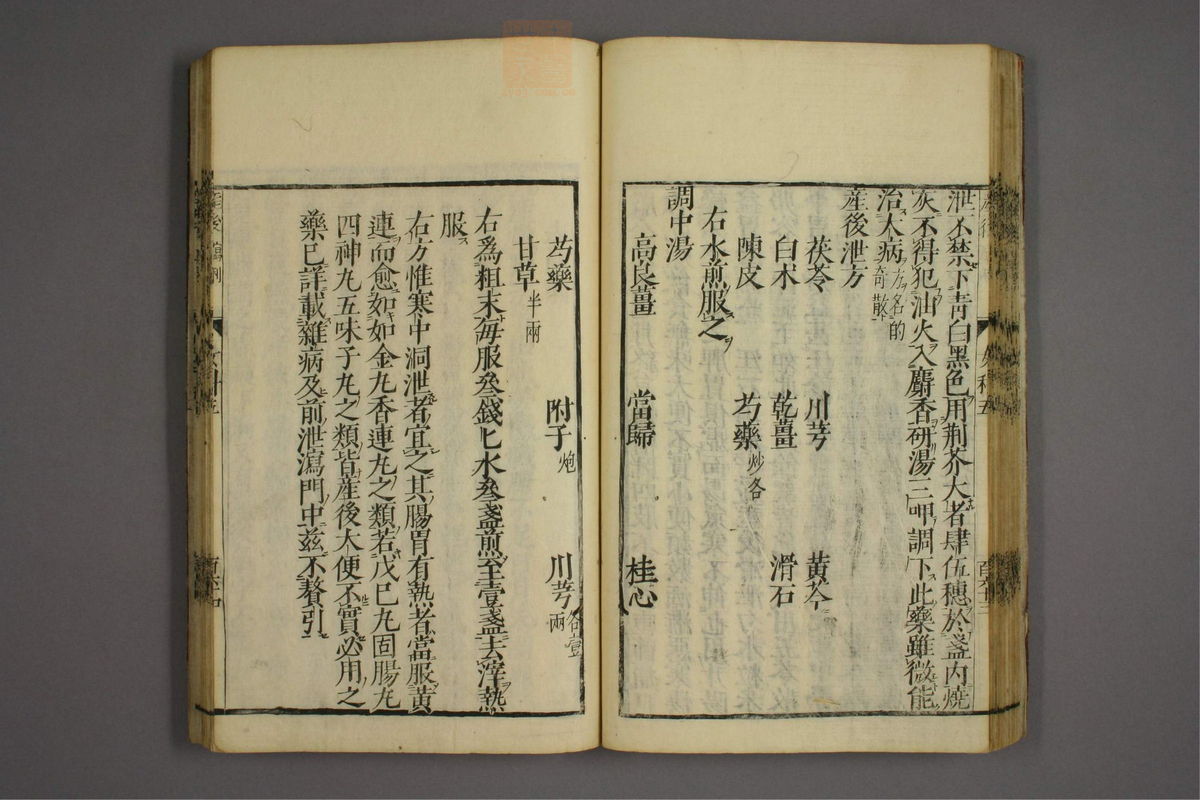 泄不禁下青白黑色用荆芥大者肆伍穗於盞內燒
灰不得犯油火入麝香研湯三呷調下此藥雖微能
治大病方名的奇散
産後泄方
茯苓 川芎 黃芩
白朮 乾薑 滑石
陳皮 芍藥炒各
右水煎服之
調中湯
高良薑 當歸 桂心
芍藥 附子炮 川芎各壹兩
甘草半兩
右爲粗末每服叁錢匕水叁盞煎至壹盞去滓熱
服
右方惟寒中洞泄者宜之其腸胃有熱者當服黃
連而愈如如金丸香連丸之類若戊己丸固腸丸
四神丸五味子丸之類皆産後大便不實必用之
藥已詳載雜病及前泄瀉門中兹不贅引